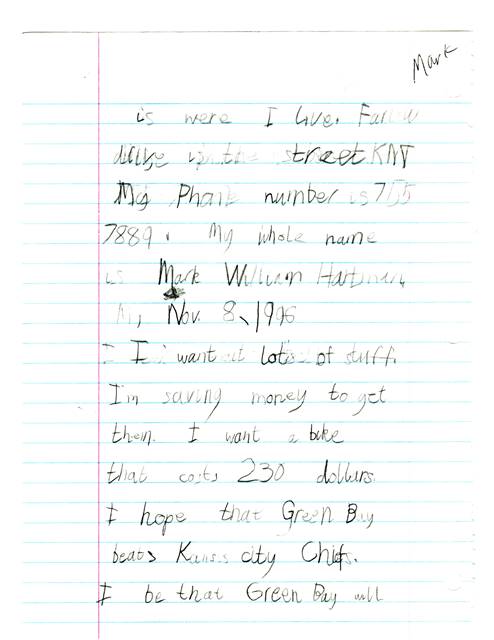 Mark
is were I live. Farlow
drive is the street KNT
My Phone number is 715
7889. My whole name
is Mark William Hartman,
My Nov. 8, 1996
I want lots of stuff.
I'm saving money to get
them. I want a bike
that costs 230 dollars.
I hope that Green Bay
beats Kansas city Chiefs.
I be that Green Bay will